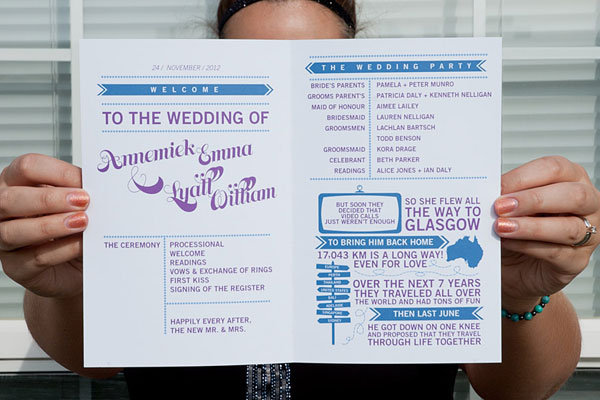 24 / NOVEMBER / 2012
WELCOME
TO THE WEDDING OF
Annemick Emma
&
Lyall William
THE CEREMONY
PROCESSIONAL
WELCOME
READINGS
VOWS & EXCHANGE OF RINGS
FIRST KISS
SIGNING OF THE REGISTER
HAPPILY EVER AFTER,
THE NEW MR. & MRS.
THE WEDDING PARTY
BRIDE'S PARENTS PAMELA + PETER MUNRO
GROOMS PARENT'S PATRICIA DALY + KENNETH NELLIGAN
MAID OF HONOUR AIMEE LAILEY
BRIDESMAID LAUREN NELLIGAN
GROOMSMEN LACHLAN BARTSCH
TODD BENSON
GROOMSMAID KORA DRAGE
CELEBRANT BETH PARKER
READINGS ALICE JONES + IAN DALY
BUT SOON THEY
DECIDED THAT
VIDEO CALLS
JUST WEREN'T ENOUGH
SO SHE FLEW ALL
THE WAY TO
GLASGOW
TO BRING HIM BACK HOME
17,043 KM IS A LONG WAY!
EVEN FOR LOVE
EUROPE
PERTH
THAILAND
UNITED STATES
BALI
ADELAIDE
SINGAPORE
SYDNEY
OVER THE NEXT 7 YEARS
THEY TRAVELED ALL OVER
THE WORLD AND HAD TONS OF FUN
THEN LAST JUNE
HE GOT DOWN ON ONE KNEE
AND PROPOSED THAT THEY TRAVEL
THROUGH LIFE TOGETHER